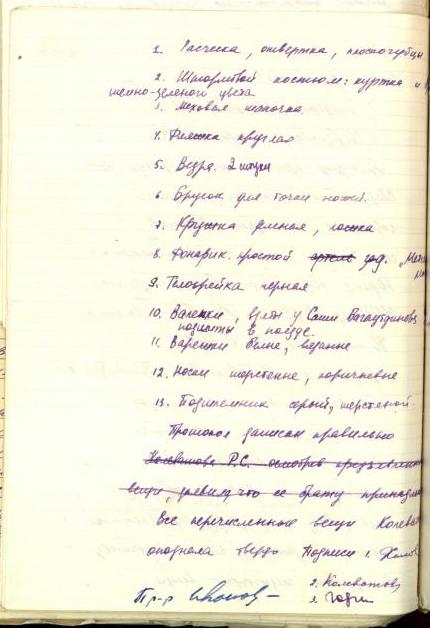 1. Расческа, отвертка, плоскогубцы
2. Штормовой костюм: куртка и
темно-зеленого цвета
3. Меховая шапочка.
4. Фляжка круглая
5. Ведра 2 штуки
6. Брусок для точки ножей.
7. Кружка, ложка
8. Фонарик простой
9. Телогрейка черная
10. Валенки, взяты у Саши
подшиты в поезде.
11. Варежки белые, вязанные
12. Носки шерстяные, коричневые
13. Подшлемник серый, шерстяной.
Протокол записан правильно
Колеватова Р.С. осмотрев предъявленные
вещи, заявила, что ее брату
Все перечисленные вещи
опознала твердо Подписи 1.
2. Колеватова
3.
Пр-р Иванов